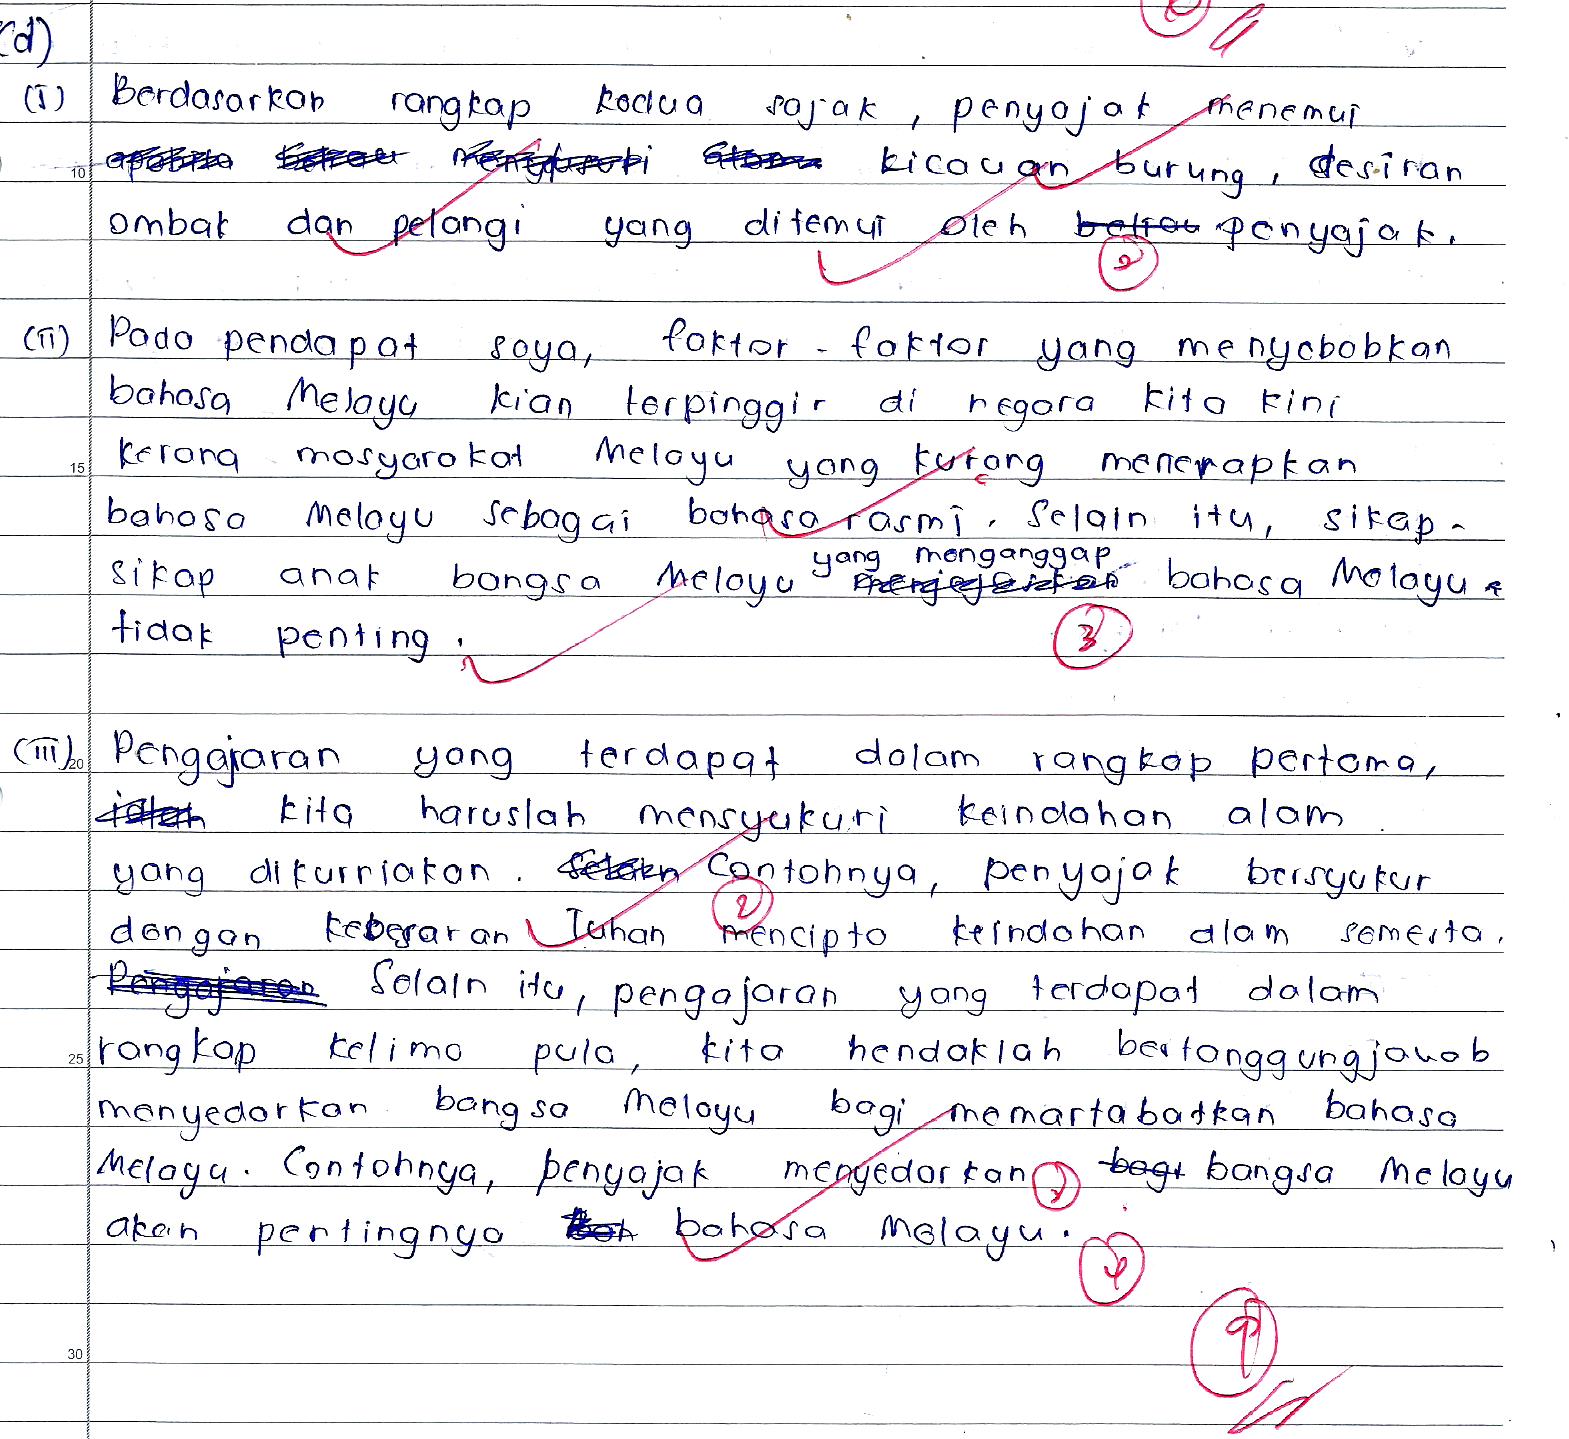 (d)
(I) Berdasarkan rangkap kedua sajak, penyajak menemui
10 kicauan burung, desiran
ombak dan pelangi yang ditemui oleh beliau penyajak.
2
(II) Pada pendapat saya, faktor-faktor yang menyebabkan
bahasa Melayu kian terpinggir di negara kita kini
15 kerana masyarakat Melayu yang kurang menerapkan
bahasa Melayu sebagai bahasa rasmi. Selain itu, sikap-
yang menganggap
sikap anak bangsa Melayu bahasa Melayu
tidak penting.
3
(III) 20 Pengajaran yang terdapat dalam rangkap pertama,
ialah kita haruslah mensyukuri keindahan alam
yang dikurniakan. Selain Contohnya, penyajak bersyukur
2
dengan kebesaran Tuhan mencipta keindahan alam semesta.
Pengajaran Selain itu, pengajaran yang terdapat dalam
25 rangkap kelima pula, kita hendaklah bertanggungjawab
menyedarkan bangsa Melayu bagi memartabatkan bahasa
Melayu. Contohnya, penyajak menyedarkan 2 bagi bangsa Melayu
akan pentingnya bahasa Melayu.
4
9
30